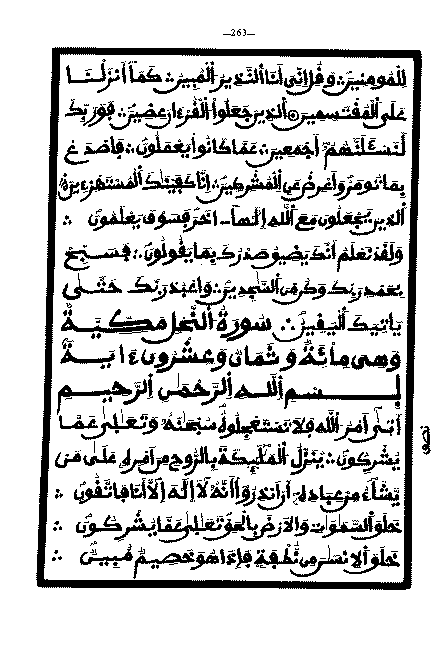 —263—
لِلْمُومِنِينَ ۞ وَقُلِ اِنِّيَ أَنَا اَلنَّذِيرُ اُلْمُبِينُ ۞ كَمَآ أَنزَلْنَا
عَلَى اَلْمُقْتَسِمِينَ ۞ اَلذِينَ جَعَلُواْ اُلْقُرْءَانَ عِضِينَ ۞ فَوَرَبِّكَ
لَنَسْـَٔلَنَّهُمُۥٓ أَجْمَعِينَ ۞ عَمَّا كَانُواْ يَعْمَلُونَ ۞ فَاصْدَعْ
بِمَا تُومَرُ وَأَعْرِضْ عَنِ اِلْمُشْرِكِينَ ۞ إِنَّا كَفَيْنَٰكَ اَلْمُسْتَهْزِءِينَ ۞
اَلذِينَ يَجْعَلُونَ مَعَ اَللَّهِ إِلَٰهاً ـ اخَرَ فَسَوْفَ يَعْلَمُونَ ۞
وَلَقَدْ نَعْلَمُ أَنَّكَ يَضِيقُ صَدْرُكَ بِمَا يَقُولُونَ ۞ فَسَبِّحْ
بِحَمْدِ رَبِّكَ وَكُن مِّنَ اَلسَّٰجِدِينَ ۞ وَاعْبُدْ رَبَّكَ حَتَّىٰ
يَاتِيَكَ اَلْيَقِينُ ۞ سُورَةُ اُلنَّحْلِ مَكِّيَّةٌ
وَهِيَ مِائَةٌ وَثَمَانٍ وَعِشْرُونَ ءَايَةً
بِسْمِ اِللَّهِ اِلرَّحْمَٰنِ اِلرَّحِيمِ
أَتَىٰٓ أَمْرُ اُللَّهِ فَلَا تَسْتَعْجِلُوهُ سُبْحَٰنَهُۥ وَتَعَٰلَىٰ عَمَّا
يُشْرِكُونَ ۞ يُنَزِّلُ اُلْمَلَٰٓئِكَةَ بِالرُّوحِ مِنَ اَمْرِهِۦ عَلَىٰ مَنْ
يَّشَآءُ مِنْ عِبَادِهِۦٓ أَنَ اَنذِرُوٓاْ أَنَّهُۥ لَآ إِلَٰهَ إِلَّآ أَنَا فَاتَّقُونِ ۞
خَلَقَ اَلسَّمَٰوَٰتِ وَالْأَرْضَ بِالْحَقِّ تَعَٰلَىٰ عَمَّا يُشْرِكُونَ ۞
خَلَقَ اَلْإِنسَٰنَ مِن نُّطْفَةٍ فَإِذَا هُوَ خَصِيمٌ مُّبِينٌ ۞
نصف